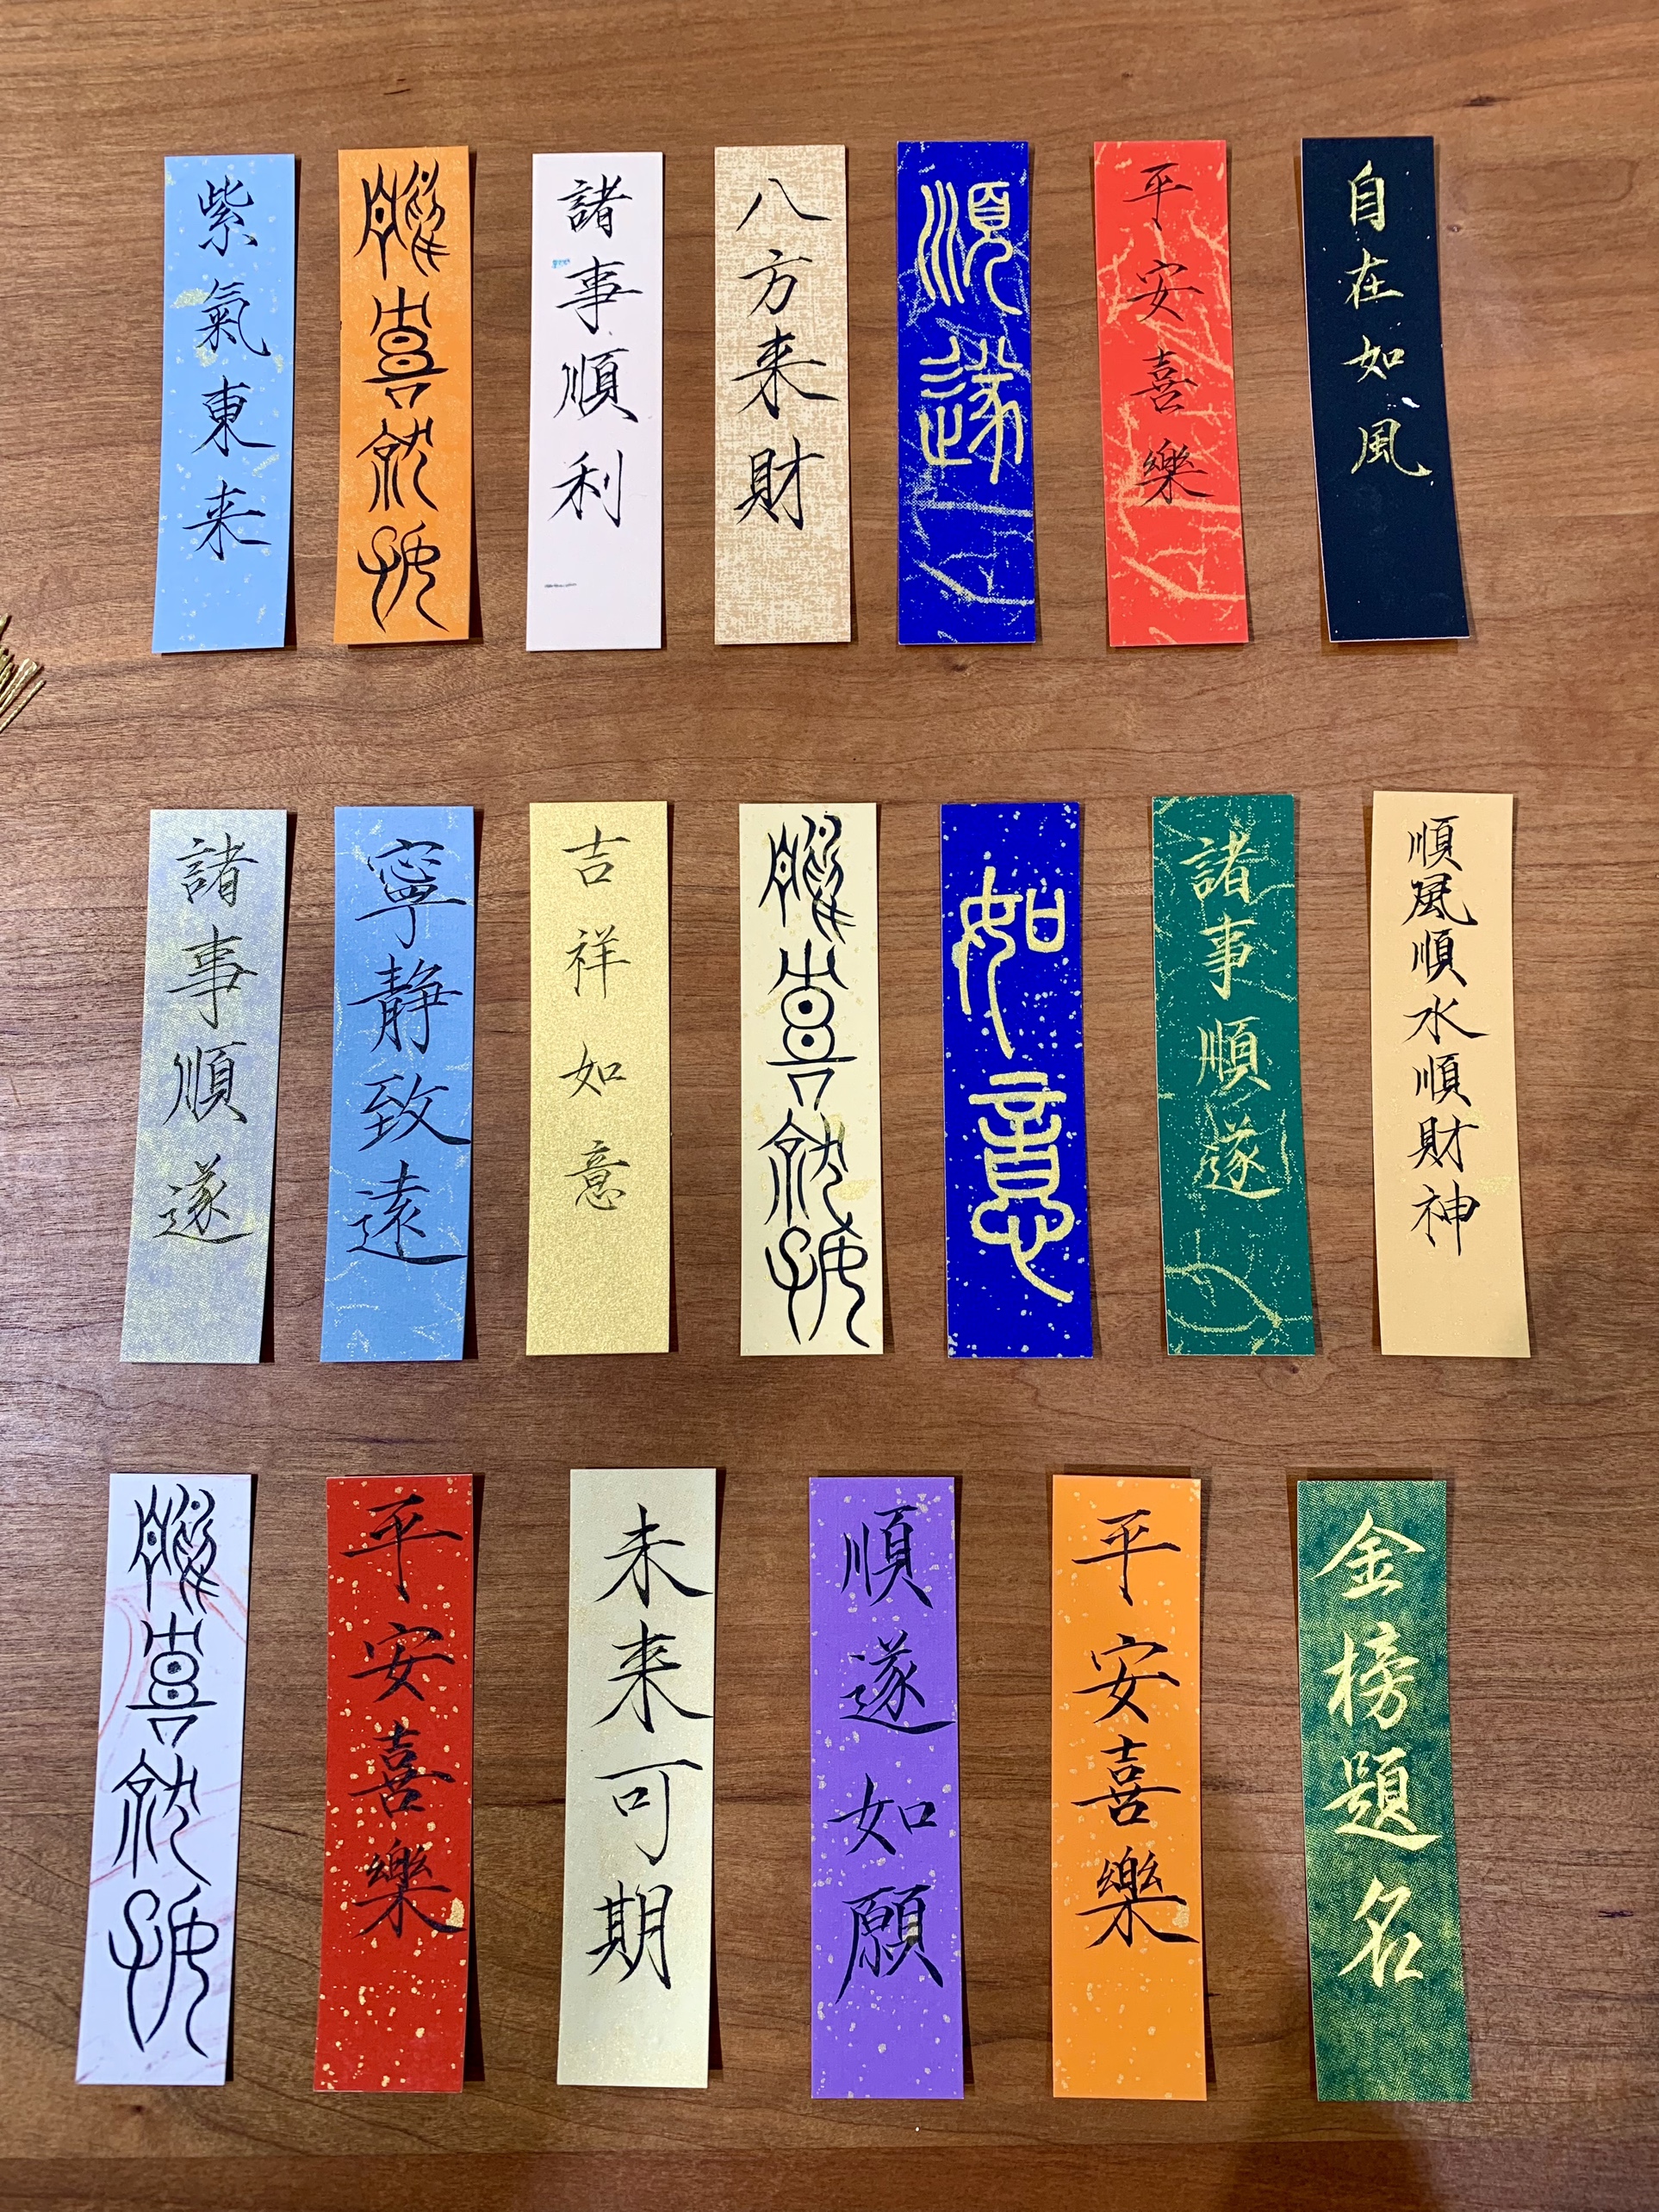 紫氣東来
懽喜就好
諸事順利
八方来財
順遂
平安喜樂
自在如風
諸事順遂
寧静致遠
吉祥如意
懽喜就好
如意
諸事順遂
順風順水順財神
懽喜就好
平安喜樂
未来可期
順遂如願
平安喜樂
金榜題名